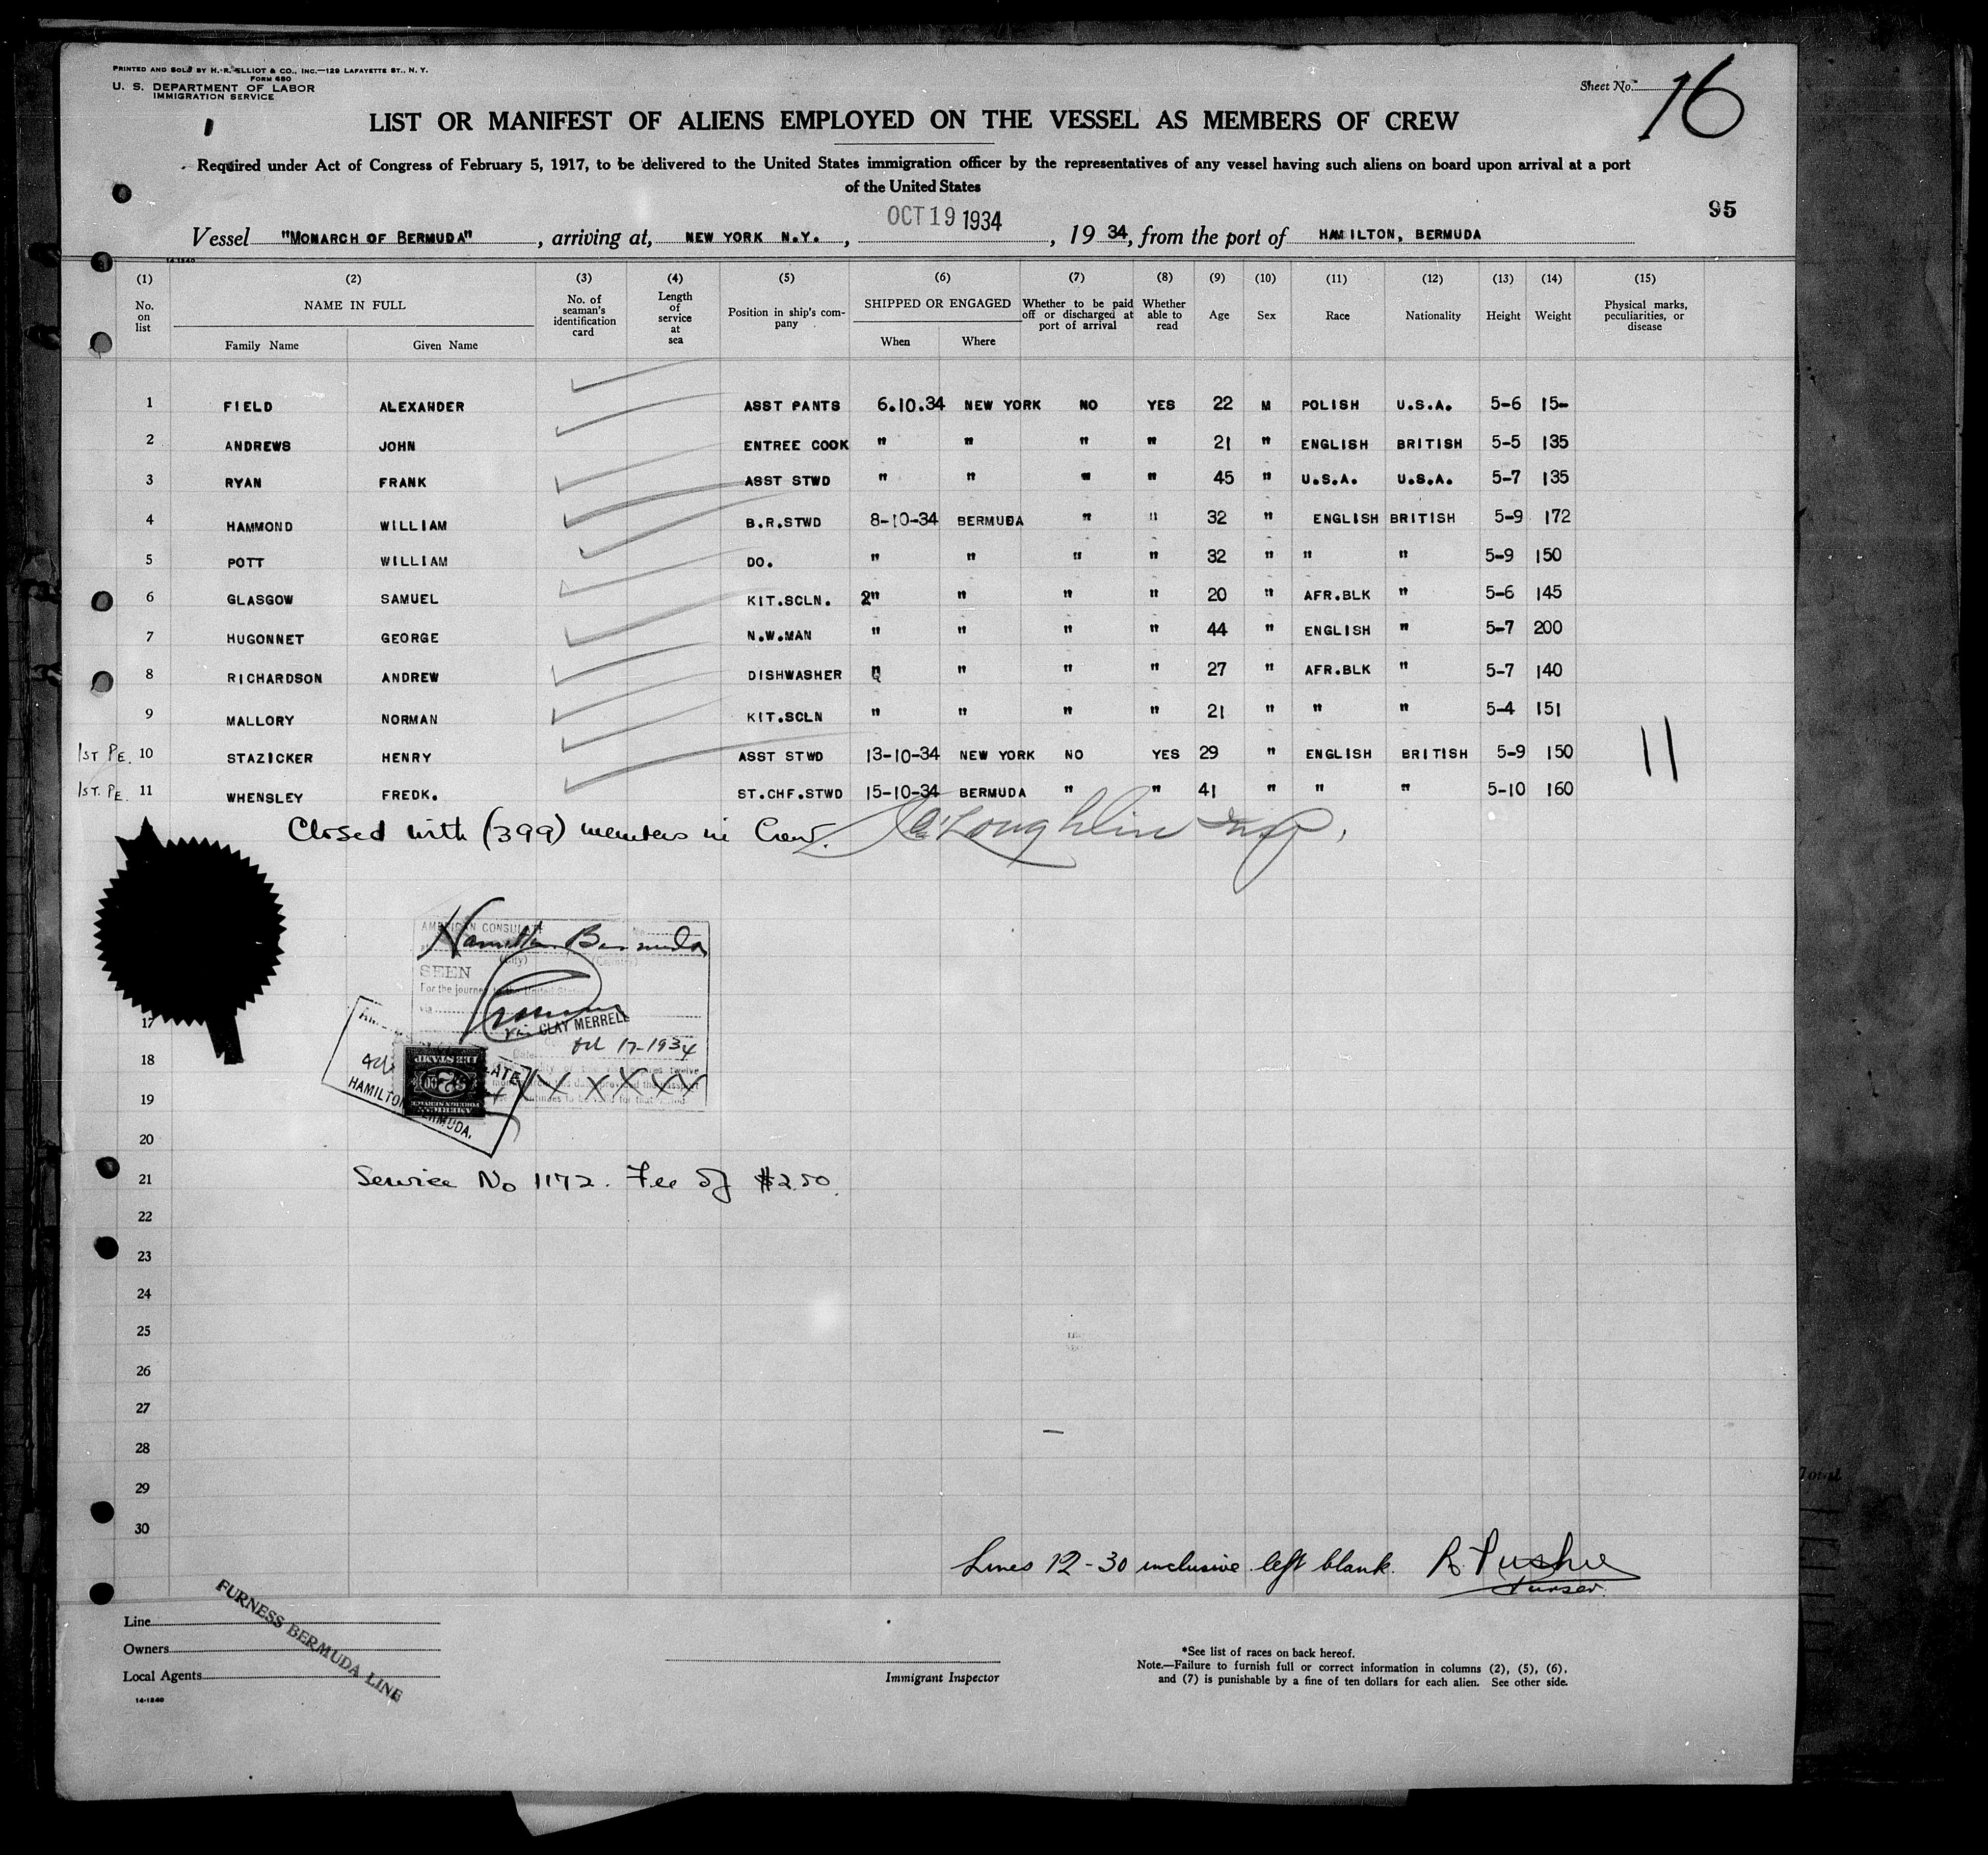 PRINTED AND SOLD BY H. R. ELLIOT & CO., INC.—129 LAFAYETTE ST., N. Y.
FORM 680
U. S. DEPARTMENT OF LABOR
IMMIGRATION SERVICE
Sheet No. 16
LIST OR MANIFEST OF ALIENS EMPLOYED ON THE VESSEL AS MEMBERS OF CREW
Required under Act of Congress of February 5, 1917, to be delivered to the United States immigration officer by the representatives of any vessel having such aliens on board upon arrival at a port
of the United States
95
Vessel "MONARCH OF BERMUDA", arriving at, NEW YORK N.Y., OCT 19 1934, 19 34, from the port of HAMILTON, BERMUDA
14-1240
(1) (2) (3) (4) (5) (6) (7) (8) (9) (10) (11) (12) (13) (14) (15)
No. on list NAME IN FULL No. of seaman's identification card Length of service at sea Position in ship's company SHIPPED OR ENGAGED Whether to be paid off or discharged at port of arrival Whether able to read Age Sex Race Nationality Height Weight Physical marks, peculiarities, or disease
Family Name Given Name When Where
1 FIELD ALEXANDER ASST PANTS 6.10.34 NEW YORK NO YES 22 M POLISH U.S.A. 5-6 15-
2 ANDREWS JOHN ENTREE COOK " " " " 21 " ENGLISH BRITISH 5-5 135
3 RYAN FRANK ASST STWD " " " " 45 " U.S.A. U.S.A. 5-7 135
4 HAMMOND WILLIAM B.R.STWD 8-10-34 BERMUDA " " 32 " ENGLISH BRITISH 5-9 172
5 POTT WILLIAM DO. " " " " 32 " " " 5-9 150
6 GLASGOW SAMUEL KIT.SCLN. 2" " " " 20 " AFR.BLK " 5-6 145
7 HUGONNET GEORGE N.W.MAN " " " " 44 " ENGLISH " 5-7 200
8 RICHARDSON ANDREW DISHWASHER " " " " 27 " AFR.BLK " 5-7 140
9 MALLORY NORMAN KIT.SCLN " " " " 21 " " " 5-4 151
1ST PE. 10 STAZICKER HENRY ASST STWD 13-10-34 NEW YORK NO YES 29 " ENGLISH BRITISH 5-9 150
11
1ST. PE. 11 WHENSLEY FREDK. ST.CHF.STWD 15-10-34 BERMUDA " " 41 " " " 5-10 160
Closed with (399) members in Crew.
AMERICAN CONSULATE
Hamilton Bermuda
(City) (Country)
SEEN
For the journey to the United States
via
CLAY MERRELL
Oct 17-1934
Date
X X X X X X
HAMILTON BERMUDA.
AMERICAN
FOREIGN SERVICE
$2
FEE STAMP
17
18
19
20
21
Service No 1172. Fee of $2.50.
22
23
24
25
26
27
28
29
30
Lines 12-30 inclusive left blank.
Purser.
Line
Owners
Local Agents
FURNESS BERMUDA LINE
14-1240
Immigrant Inspector
*See list of races on back hereof.
Note.—Failure to furnish full or correct information in columns (2), (5), (6),
and (7) is punishable by a fine of ten dollars for each alien. See other side.
Total